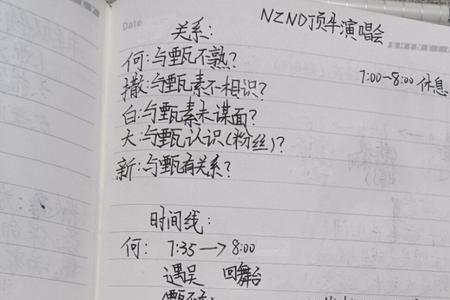 Date
NZND顶牛演唱会
关系:
7:00-8:00 休息
何:与甄不熟?
撒:与甄素不相识?
白:与甄素未谋面?
大:与甄认识(粉丝)?
新:与甄有关系?
时间线:
何: 7:35→8:00
遇吴 回舞台